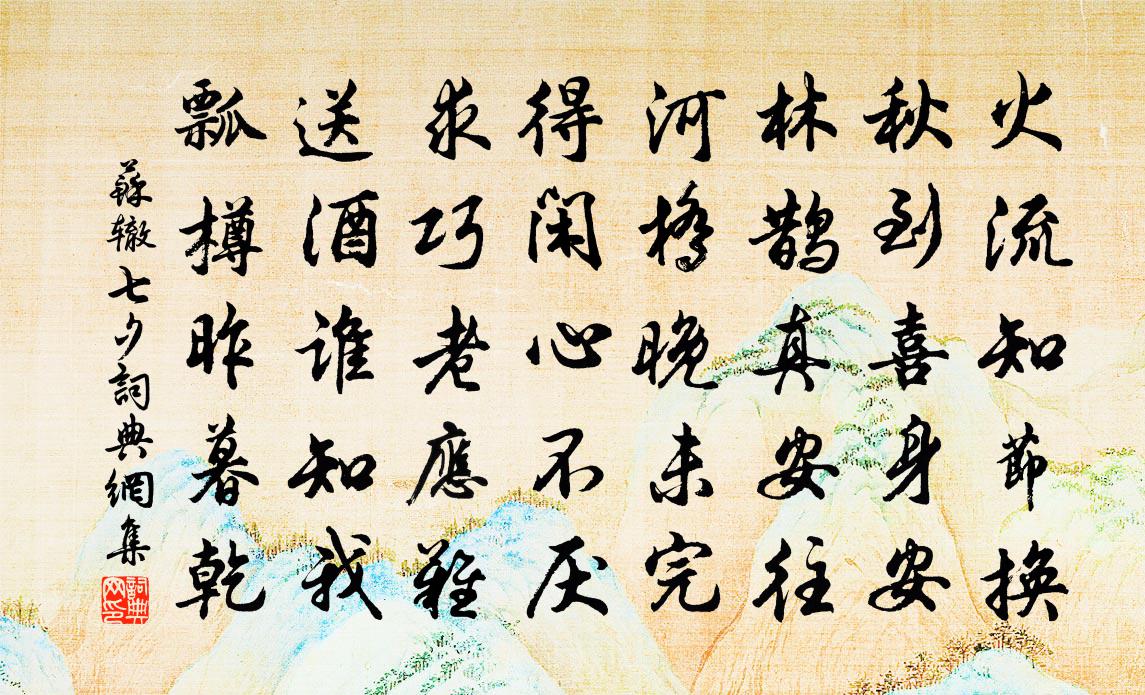 火流知節換
秋到喜身安
林鵲真安往
河橋晚未完
得閑心不厌
求巧老應難
送酒誰知我
瓢樽昨暮乾
蘇辙七夕詞典網集
詞典网印